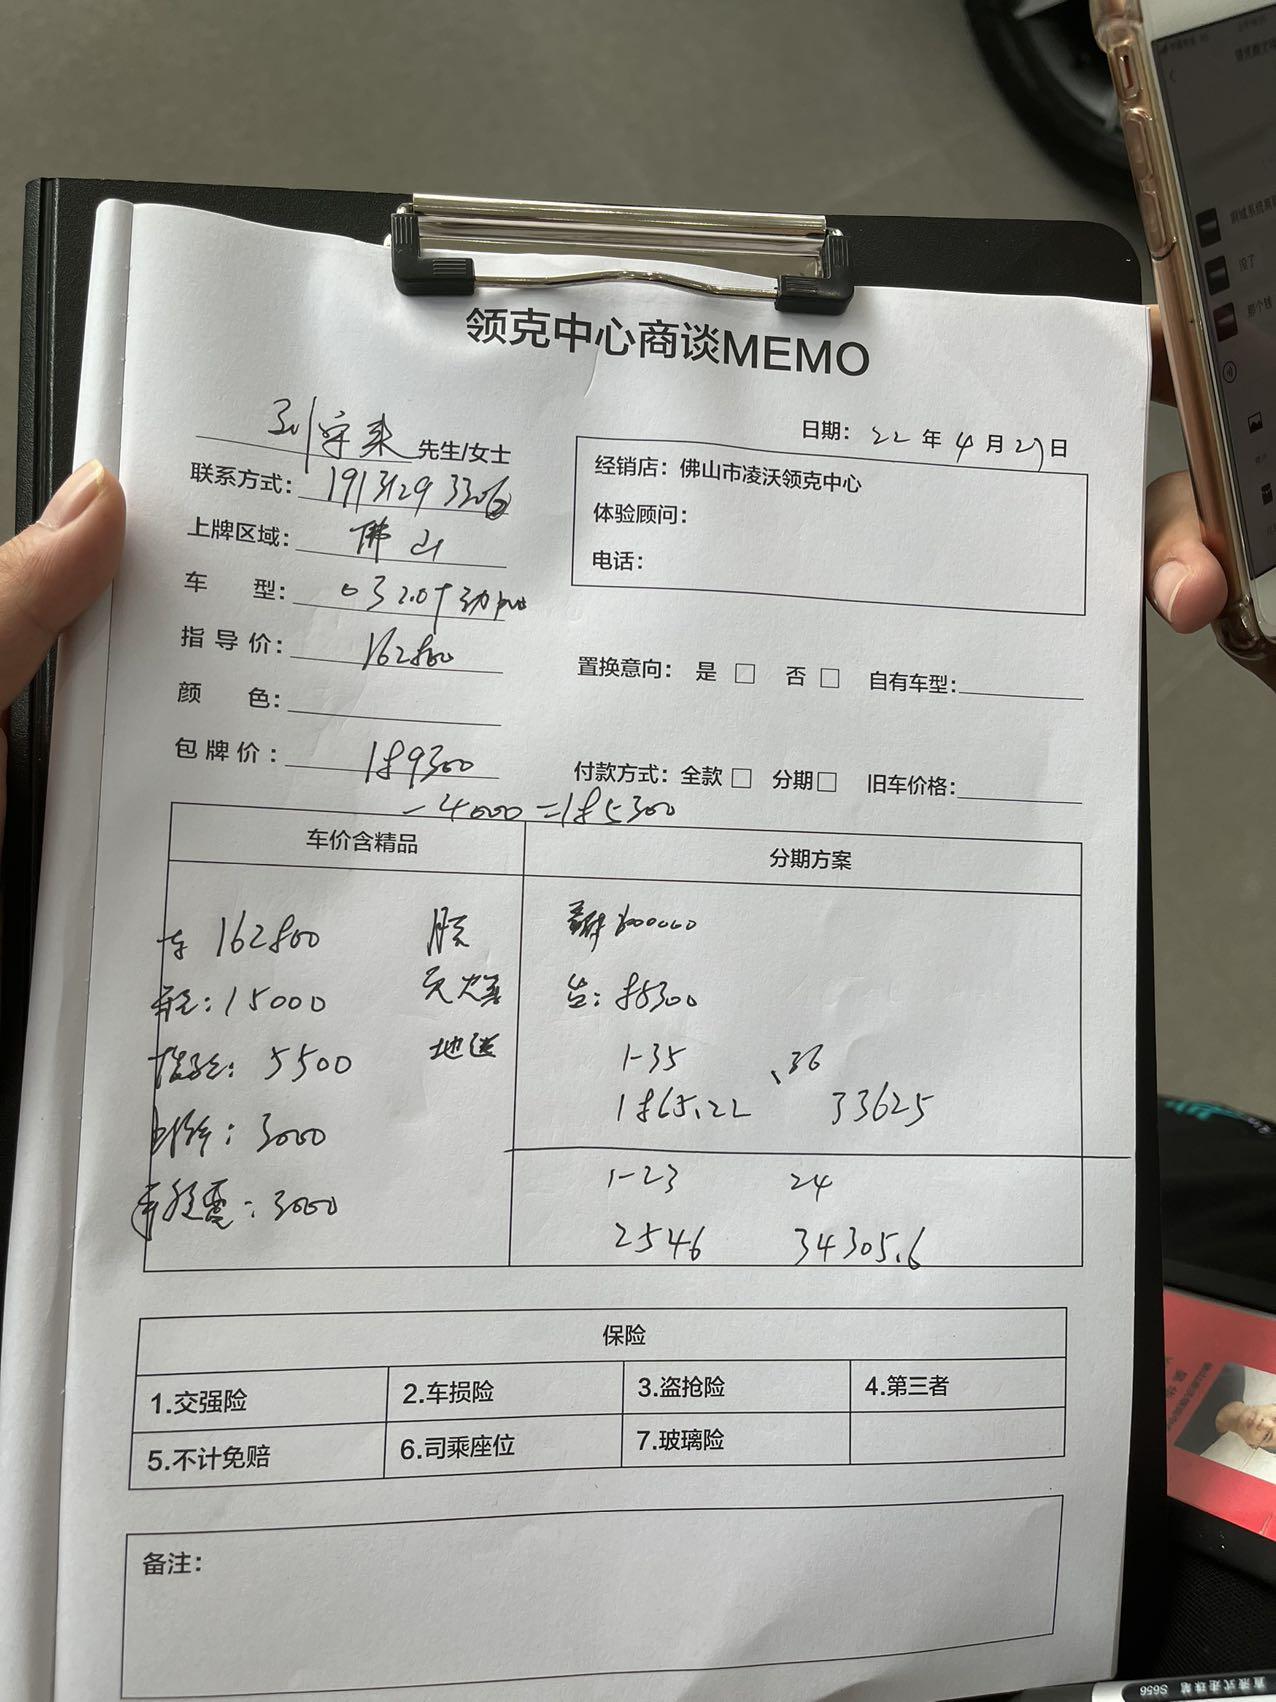 领克中心商谈MEMO
日期: 22 年 4 月 27 日
先生/女士
联系方式:
上牌区域: 佛山
车 型: 03 2.0T 劲
指导价: 162800
颜 色:
包牌价: 189300
-4000=185300
经销店: 佛山市凌沃领克中心
体验顾问:
电话:
置换意向: 是 □ 否 □ 自有车型:
付款方式: 全款 □ 分期□ 旧车价格:
车价含精品
车 162800 膜
15000
5500 地毯
3000
3000
分期方案
85300
1-35 36
1865.22 33625
1-23 24
2546 34305.6
保险
1.交强险 2.车损险 3.盗抢险 4.第三者
5.不计免赔 6.司乘座位 7.玻璃险
备注:
那个钱
没了
直液式走珠笔 S656